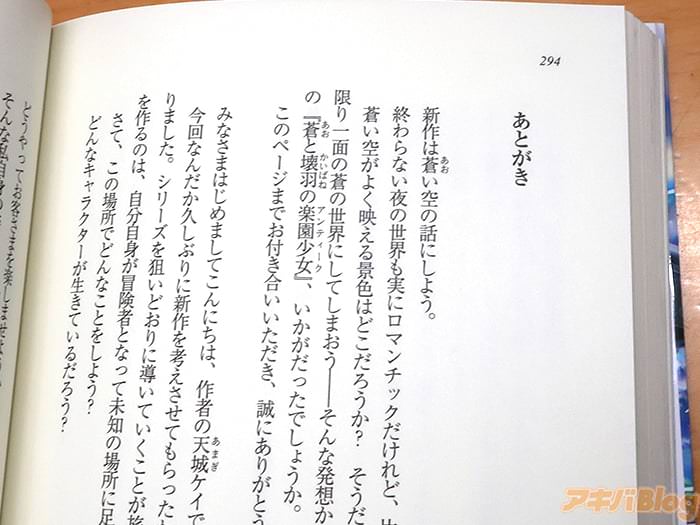 294
あとがき
新作は蒼い空の話にしよう。
あお
終わらない夜の世界も実にロマンチックだけれど、
蒼い空がよく映える景色はどこだろうか？　そうだ
限り一面の蒼の世界にしてしまおう――そんな発想か
の『蒼と壊羽の楽園少女』、いかがだったでしょうか。
あお かいばね アンティーク
このページまでお付き合いいただき、誠にありがとう
みなさまはじめましてこんにちは、作者の天城ケイで
あまぎ
今回なんだか久しぶりに新作を考えさせてもらった
りました。シリーズを狙いどおりに導いていくことが
を作るのは、自分自身が冒険者となって未知の場所に足
さて、この場所でどんなことをしよう？
どんなキャラクターが生きているだろう？
どうやってお客さまを楽しませよう
そんな私自身の
アキバBlog